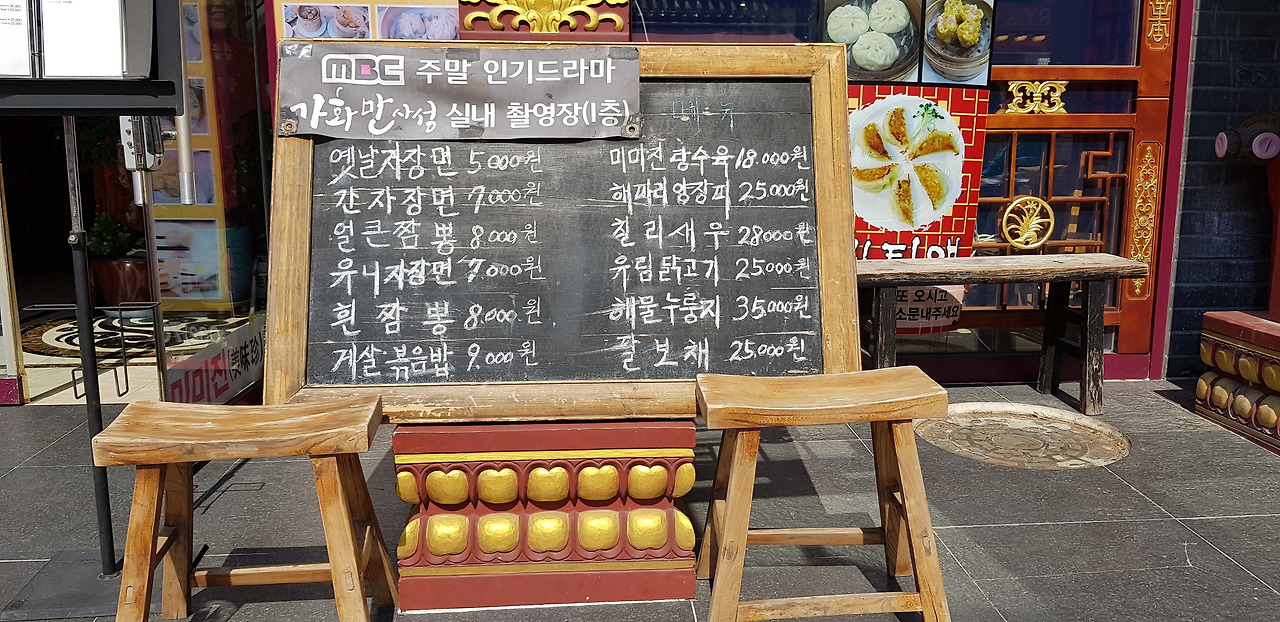 MBC 주말 인기드라마
가화만사성 실내 촬영장(1층)
옛날자장면 5.000원
간자장면 7.000원
얼큰짬뽕 8.000원
유니자장면 7.000원
흰짬뽕 8.000원
게살볶음밥 9.000원
미미진탕수육 18.000원
해파리양장피 25.000원
칠리새우 28.000원
유림닭고기 25.000원
해물누룽지 35.000원
팔보채 25.000원
또 오시고
소문내주세요
미미진(美味珍)